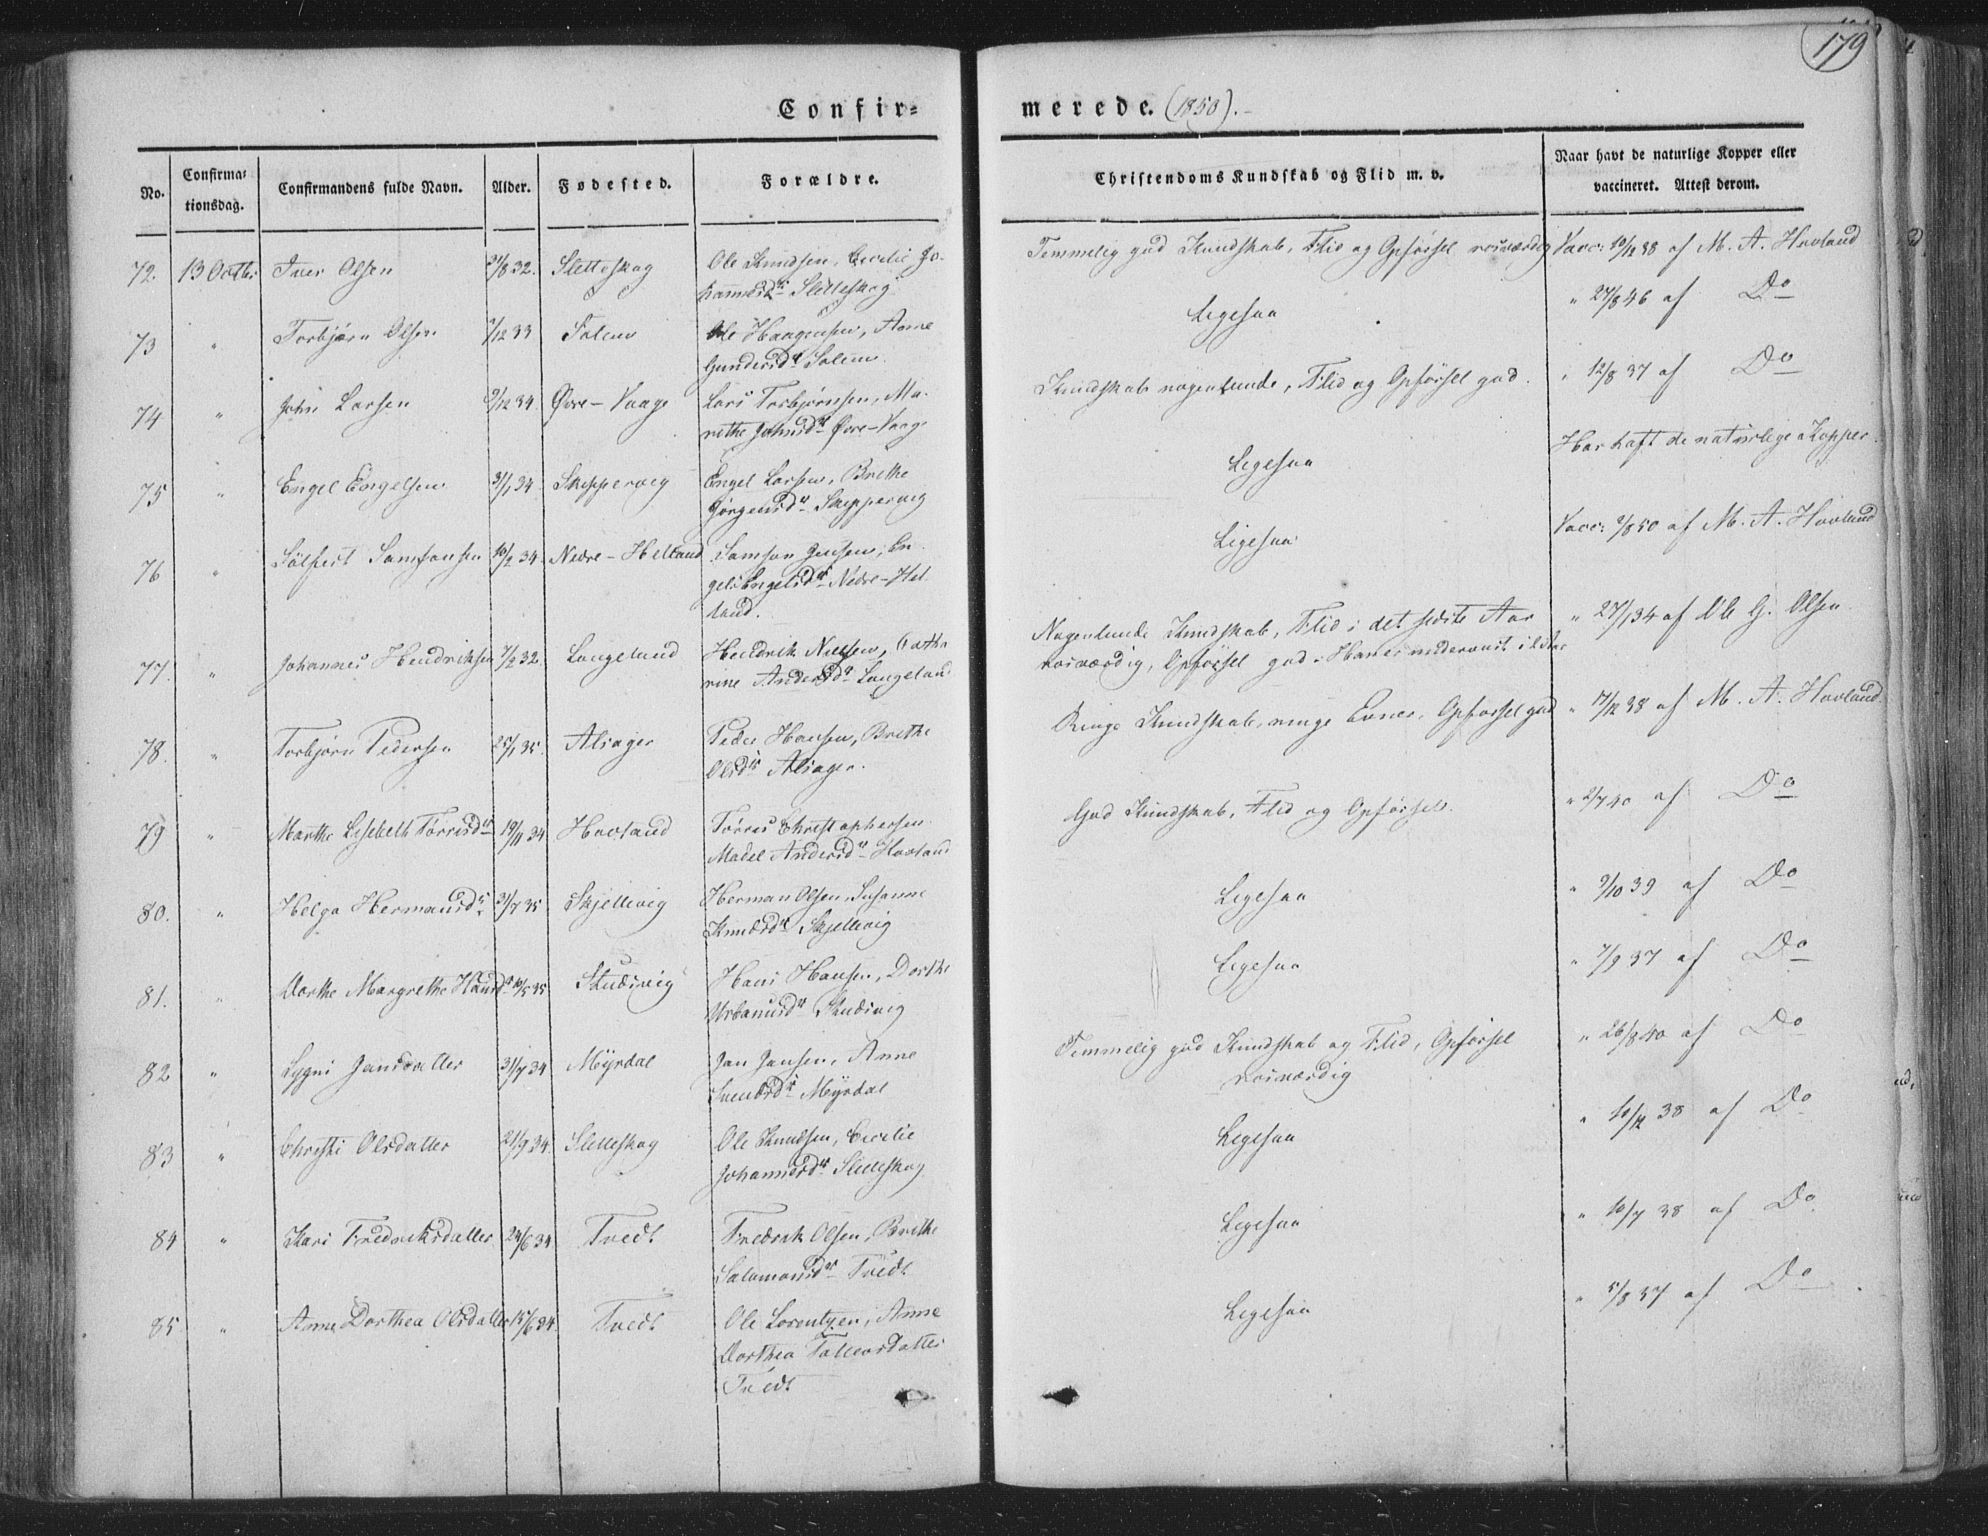 179
Confir=
merede. (1850).-
No.
Confirma=
tionsdag.
Confirmandens fulde Navn.
Alder.
Fødested.
Forældre.
Christendoms Kundskab og Flid m. v.
Naar havt de naturlige Kopper eller
vaccineret. Attest derom.
72. 13 Octbr Iver Olsen 32. Sletteskog Ole Knudsen, Cecilie Jo-
hannesdr Sletteskog
Temmelig god Kundskab, Flid og Opførsel rosværdig Vacc: 10/12 38 af M. A. Hovland
73 " Torbjørn Olsen /12 33 Solem Ole Haagensen, Anne
Gundersdr Solem.
Ligesaa " 27/8 46 af Do
74 " John Larsen 9/12 34 Øvre-Vaage Lars Torbjørnsen, Ma-
rethe Johnsdr Øvre-Vaage
Kundskab nogenlunde, Flid og Opførsel god. " 12/8 37 af Do
75 " Engel Engelsen 3/1 34 Skippervig Engel Larsen, Brethe
Jørgensdr Skippervig
Ligesaa Har haft de naturlige Kopper.
76 " Sølfest Samsonsen 10/2 34 Nedre-Helland Samson Jensen, En-
gel Engelsdr Nedre-Hel-
land.
Ligesaa Vacc: 9/8 50 af M. A. Hovland
77. " Johannes Hendriksen 7/2 32 Langeland Hendrik Nielsen, Catha-
rine Andersdr Langeland
Nogenlunde Kundskab, Flid i det sidste Aar
rosværdig, Opførsel god.
" 27/1 34 af Ole G. Olsen
78. " Torbjørn Pedersen 25/1 35. Alsager Peder Hansen, Brethe
Olsdr Alsager.
Ringe Kundskab, ringe Evner, Opførsel god " 17/12 38 af M. A. Hovland
79 " Marthe Lisebeth Tørrisdr 19/11 34 Hovland Tørres Christophersen
Madel Andersdr Hovland
God Kundskab, Flid og Opførsel. " 2/7 40 af Do
80. " Helga Hermansdr 3/7 35 Skjellevig Herman Olsen, Susanne
Knudsdr Skjellevig
Ligesaa " 9/10 39 af Do
81. " Dorthe Margrethe Hansdr 10/5 35 Studsvig Hans Hansen, Dorthe
Urbanusdr Studsvig
Ligesaa " 7/9 37 af Do
82 " Lygni Jansdatter 31/7 34 Myrdal Jan Jansen, Anne
Svendsdr Myrdal
Temmelig god Kundskab og Flid, Opførsel
rosværdig
" 26/8 40 af Do
83 " Christi Olsdatter 21/9 34. Sletteskog Ole Knudsen, Cecilie
Johannesdr Sletteskog
Ligesaa " 10/12 38 af Do
84 " Kari Fredriksdatter 24/6 34 Tvedt Fredrik Olsen, Brethe
Salamonsdr Tvedt
Ligesaa " 10/7 38 af Do
85 " Anne Dorthea Olsdatter 15/6 34 Tvedt Ole Lorentzen, Anne
Dorthea Tollevsdatter
Tvedt
Ligesaa " 5/8 37 af Do